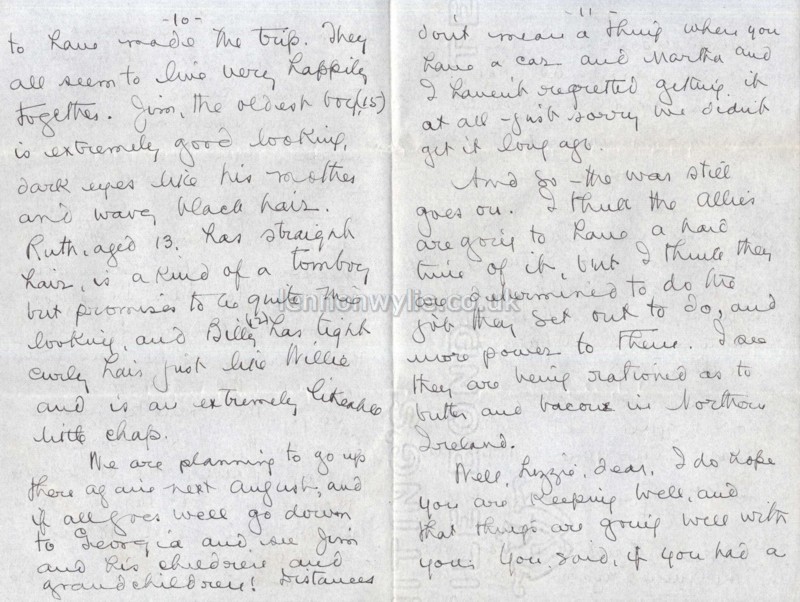 -10-
to have made the trip. They
all seem to live very happily
together. Jim, the oldest boy, (15)
is extremely good looking,
dark eyes like his mother
and wavy black hair.
Ruth, aged 13, has straight
hair, is a kind of a tomboy
but promises to be quite nice
looking, and Billy (12) has tight
curly hair just like Willie
and is an extremely likeable
little chap.
We are planning to go up
there again next August, and
if all goes well go down
to Georgia and see Jim
and his children and
grandchildren! Distances
-11-
don't mean a thing when you
have a car and Martha and
I haven't regretted getting it
at all - just sorry we didn't
get it long ago.
And so - the war still
goes on. I think the Allies
are going to have a hard
time of it, but I think they
are determined to do the
job they set out to do, and
more power to them. I see
they are being rationed as to
butter and bacon in Northern
Ireland.
Well, Lizzie, dear, I do hope
you are keeping well, and
that things are going well with
you. You said, if you had a
lennonwylie.co.uk